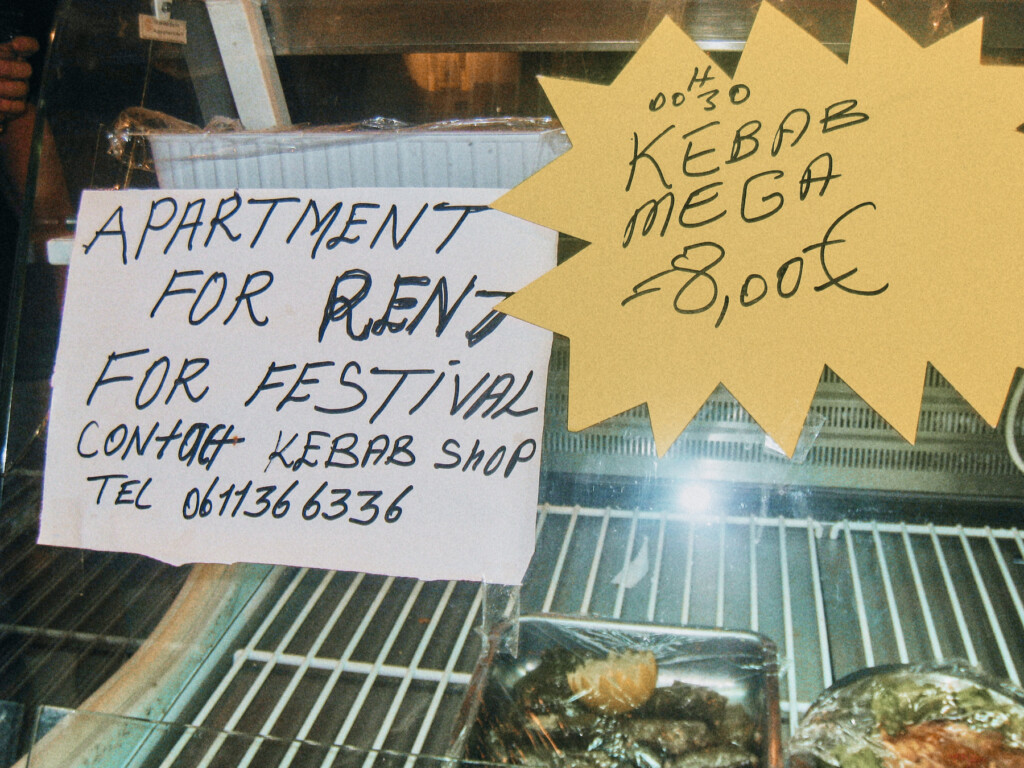 APARTMENT
FOR RENT
FOR FESTIVAL
CONTACT KEBAB SHOP
TEL 0611366336
00H30
KEBAB
MEGA
-8,00€